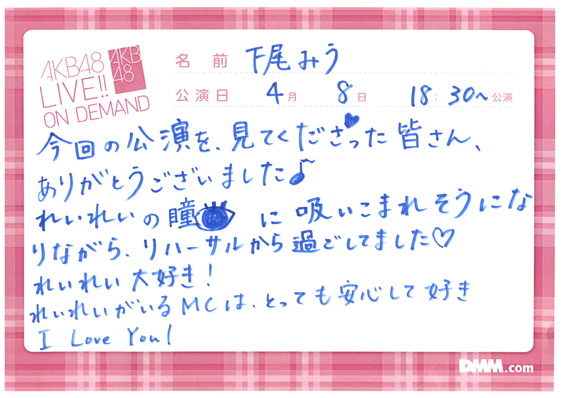 AKB48
LIVE!!
ON DEMAND
AKB
48
名前 下尾みう
公演日 4月 8日 18:30〜公演
今回の公演を、見てくださった皆さん、
ありがとうございました♪
れいれいの瞳 に吸いこまれそうにな
りながら、リハーサルから過ごしてました♡
れいれい大好き!
れいれいがいるMCは、とっても安心して好き
I Love You!
DMM.com